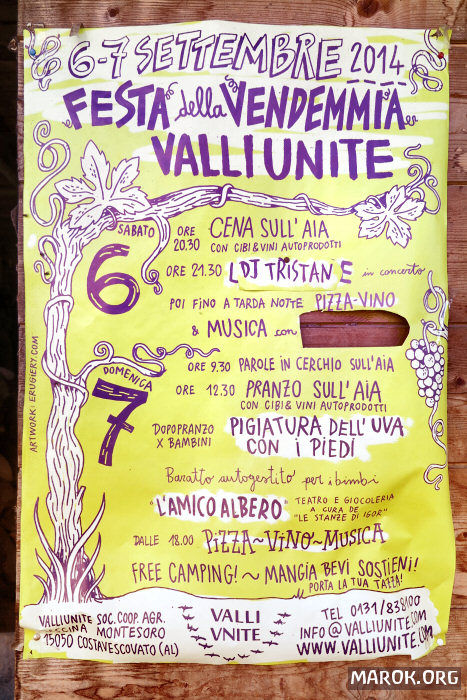 6-7 SETTEMBRE 2014
FESTA della VENDEMMIA
VALLI UNITE
SABATO
6
ORE 20.30
CENA SULL'AIA
CON CIBI & VINI AUTOPRODOTTI
ORE 21.30 LDJ TRISTAN E in concerto
POI FINO A TARDA NOTTE PIZZA-VINO
& MUSICA con
DOMENICA
7
ORE 9.30 PAROLE IN CERCHIO SULL'AIA
ORE 12.30 PRANZO SULL'AIA
CON CIBI & VINI AUTOPRODOTTI
DOPOPRANZO X BAMBINI
PIGIATURA DELL'UVA
CON I PIEDI
Baratto autogestito per i bimbi
"L'AMICO ALBERO"
TEATRO E GIOCOLERIA
A CURA DE
"LE STANZE DI IGOR"
DALLE 18.00 PIZZA~VINO~MUSICA
FREE CAMPING! ~ MANGIA BEVI SOSTIENI!
PORTA LA TUA TAZZA!
ARTWORK: ERUGIERY.COM
VALLIUNITE SOC. COOP. AGR.
CINA MONTESORO
15050 COSTAVESCOVATO (AL)
VALLI
VNITE
TEL 0131/838100
INFO@VALLIUNITE.COM
WWW.VALLIUNITE.COM
MAROK.ORG